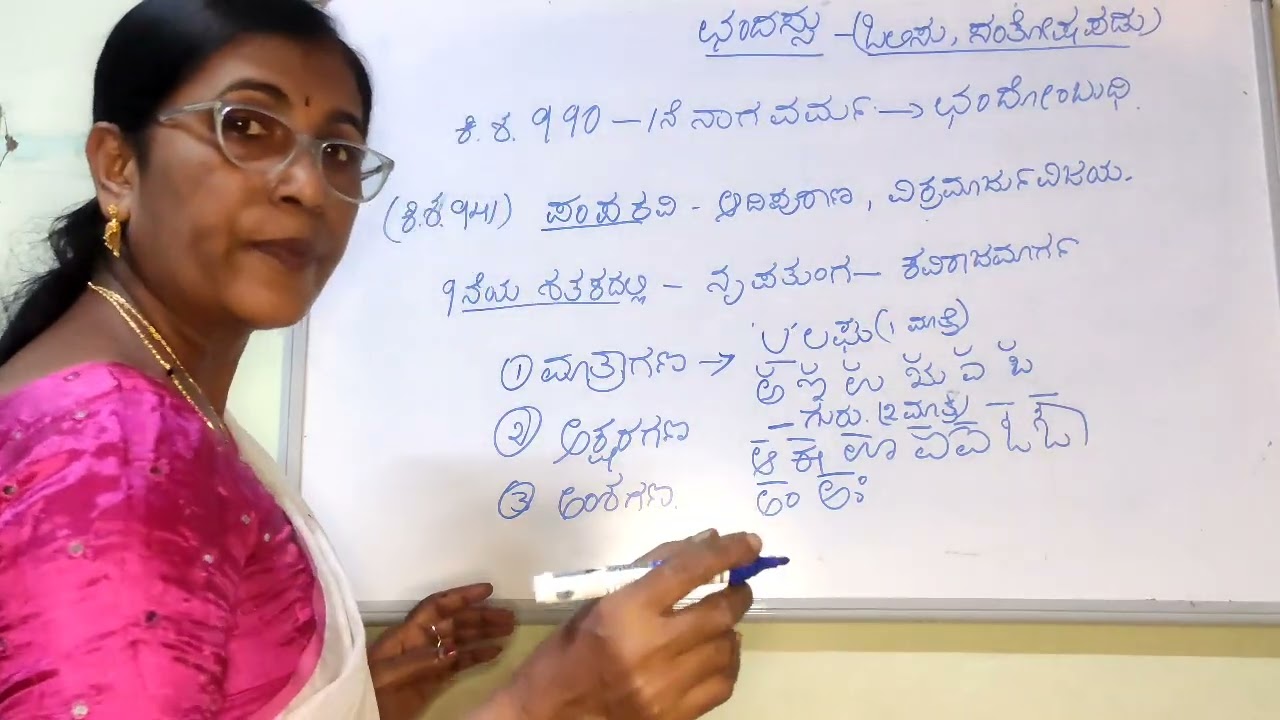 ಛಂದಸ್ಸು - (ಒಲಿಸು, ಸಂತೋಷಪಡು)
ಕ್ರಿ. ಶ. 990 - 1ನೆ ನಾಗವರ್ಮ → ಛಂದೋಂಬುಧಿ.
(ಕ್ರಿ.ಶ. 941) ಪಂಪಕವಿ - ಆದಿಪುರಾಣ, ವಿಕ್ರಮಾರ್ಜುನವಿಜಯ.
9ನೆಯ ಶತಕದಲ್ಲಿ - ನೃಪತುಂಗ - ಕವಿರಾಜಮಾರ್ಗ
U ಲಘು (1 ಮಾತ್ರೆ)
① ಮಾತ್ರಾಗಣ → ಅ ಇ ಉ ಋ ಎ ಒ
— ಗುರು. (2 ಮಾತ್ರೆ)
② ಅಕ್ಷರಗಣ ಆ ಈ ಊ ಏ ಐ ಓ ಔ
③ ಅಂಶಗಣ. ಅಂ ಅಃ